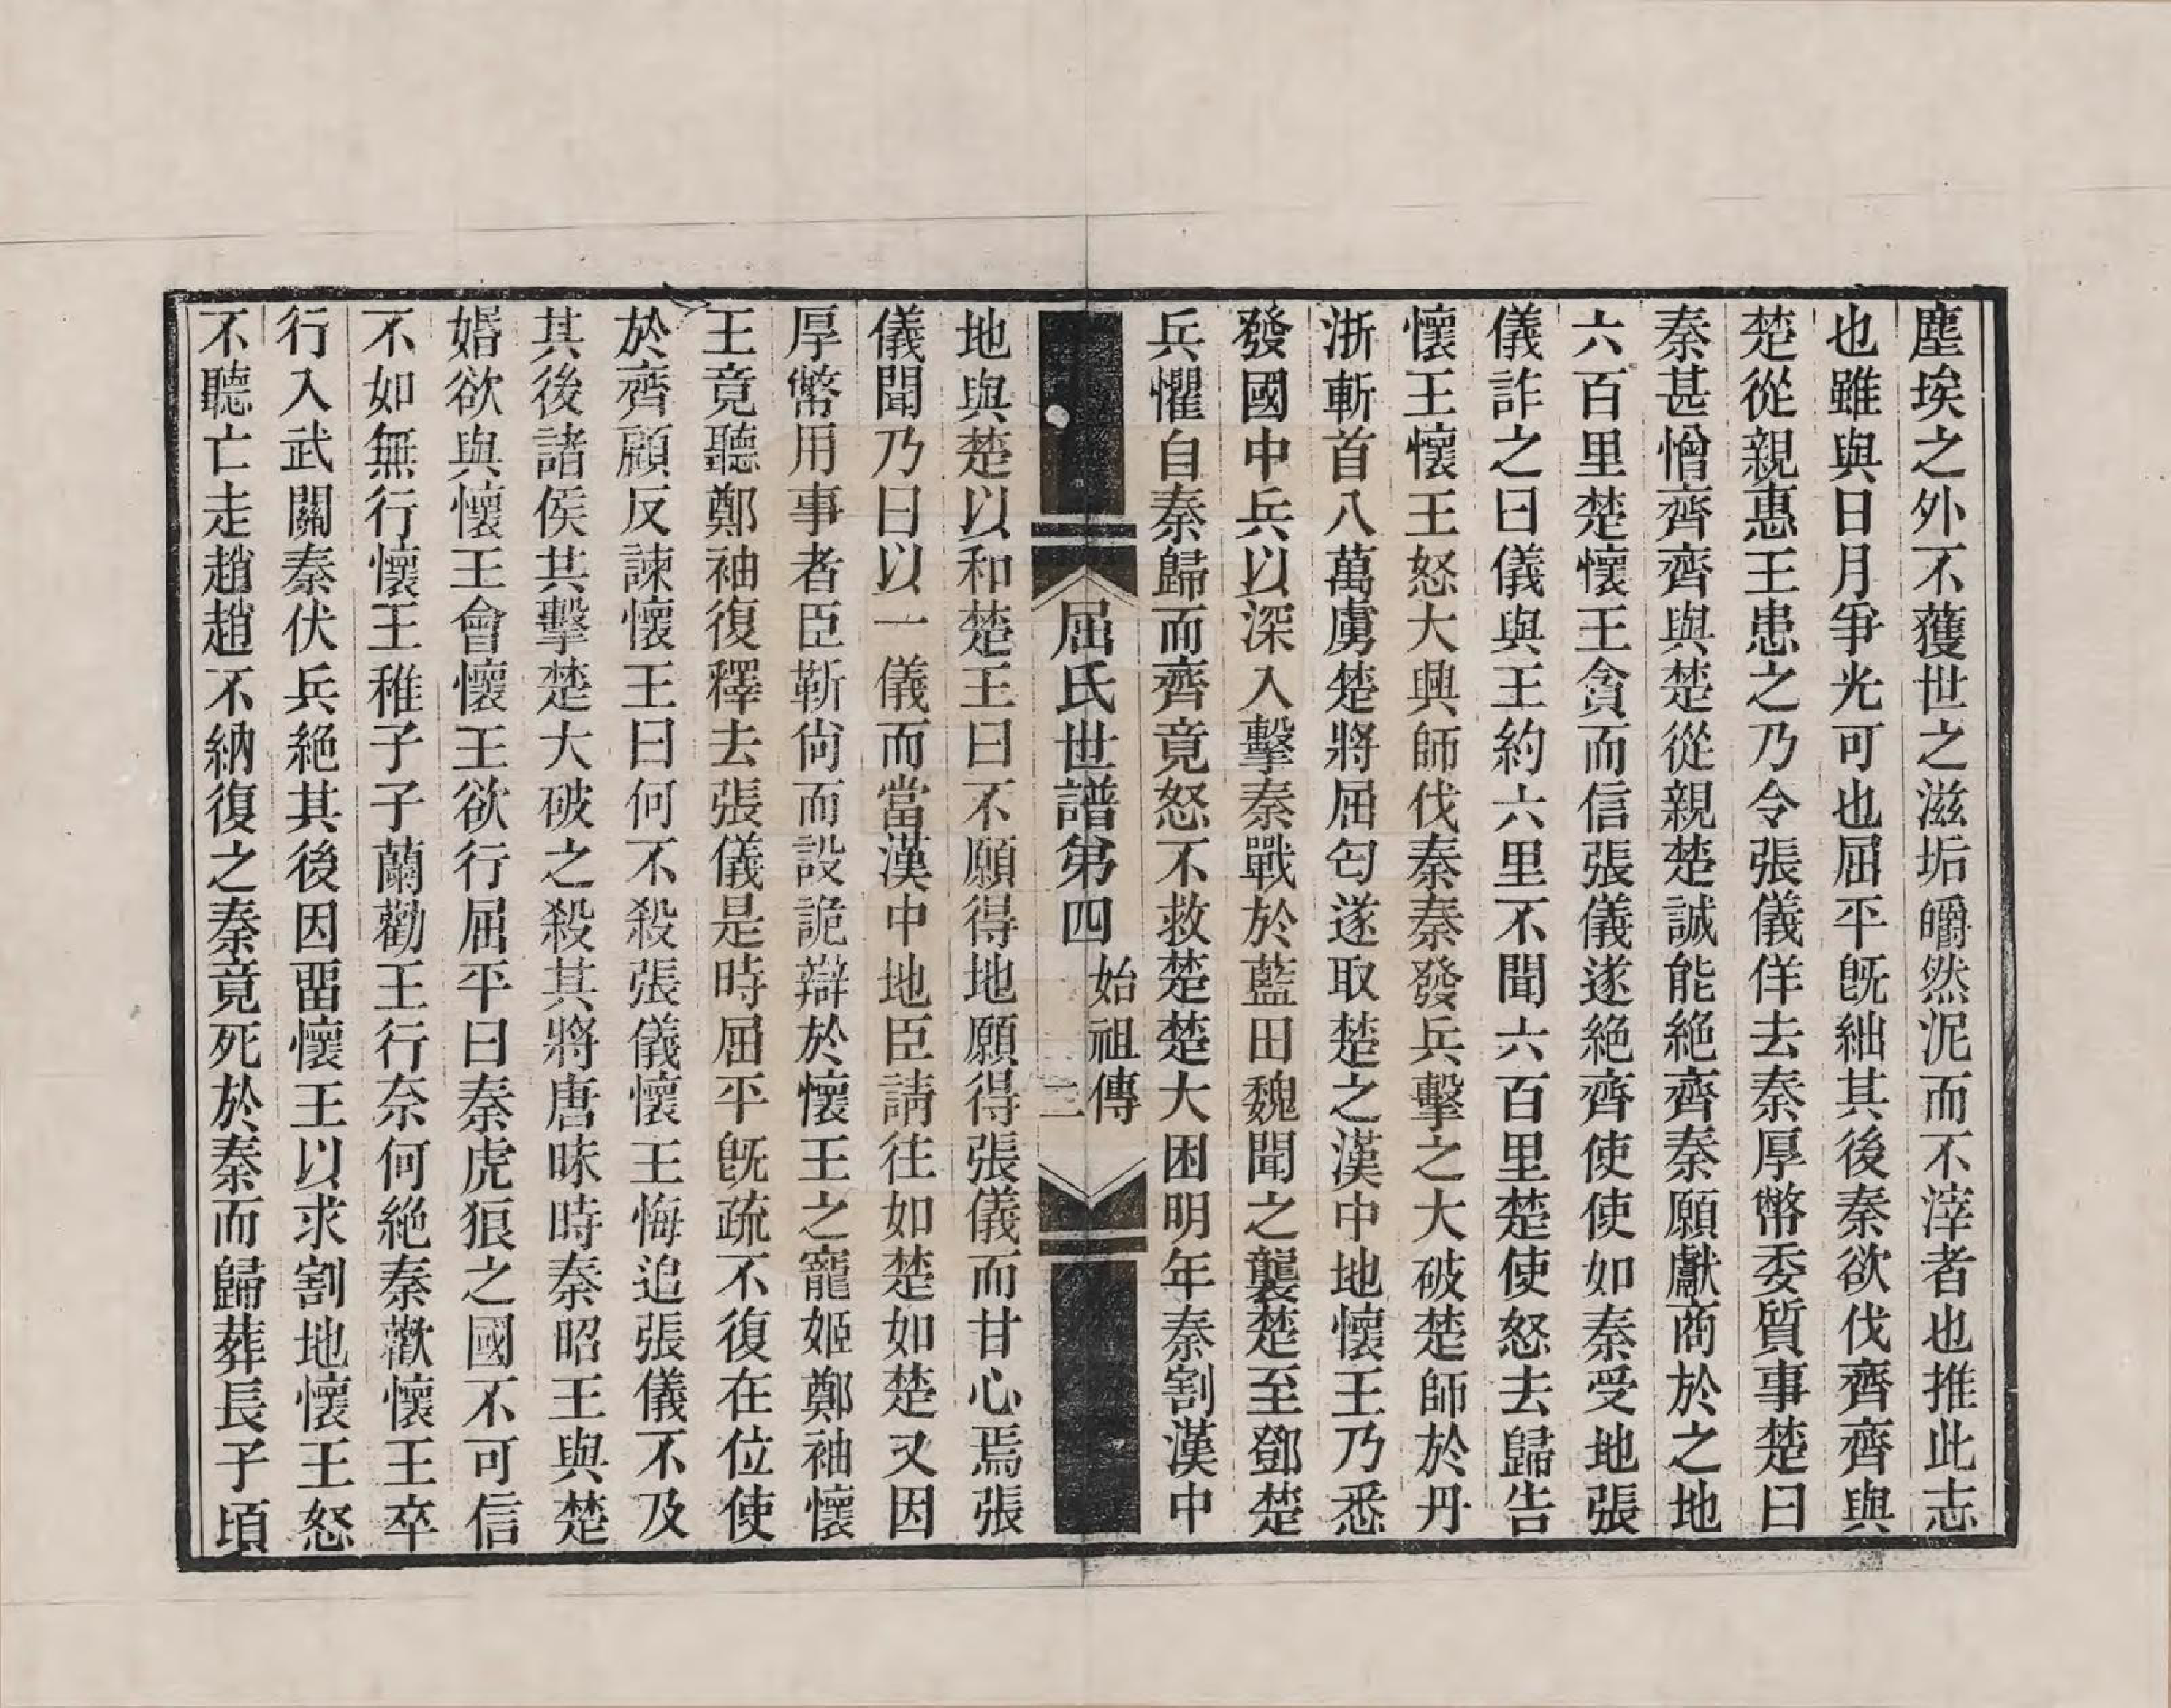 塵埃之外不獲世之滋垢皭然泥而不滓者也推此志
也雖與日月爭光可也屈平旣絀其後秦欲伐齊齊與
楚從親惠王患之乃令張儀佯去秦厚幣委質事楚曰
秦甚憎齊齊與楚從親楚誠能絕齊秦願獻商於之地
六百里楚懷王貪而信張儀遂絕齊使使如秦受地張
儀詐之曰儀與王約六里不聞六百里楚使怒去歸告
懷王懷王怒大興師伐秦秦發兵擊之大破楚師於丹
浙斬首八萬虜楚將屈匄遂取楚之漢中地懷王乃悉
發國中兵以深入擊秦戰於藍田魏聞之襲楚至鄧楚
兵懼自秦歸而齊竟怒不救楚楚大困明年秦割漢中
屈氏世譜第四 始祖傳 二
地與楚以和楚王曰不願得地願得張儀而甘心焉張
儀聞乃曰以一儀而當漢中地臣請往如楚如楚又因
厚幣用事者臣靳尚而設詭辯於懷王之寵姬鄭袖懷
王竟聽鄭袖復釋去張儀是時屈平旣疏不復在位使
於齊顧反諫懷王曰何不殺張儀懷王悔追張儀不及
其後諸侯共擊楚大破之殺其將唐昧時秦昭王與楚
婚欲與懷王會懷王欲行屈平曰秦虎狼之國不可信
不如無行懷王稚子子蘭勸王行奈何絕秦歡懷王卒
行入武關秦伏兵絕其後因畱懷王以求割地懷王怒
不聽亡走趙趙不納復之秦竟死於秦而歸葬長子頃